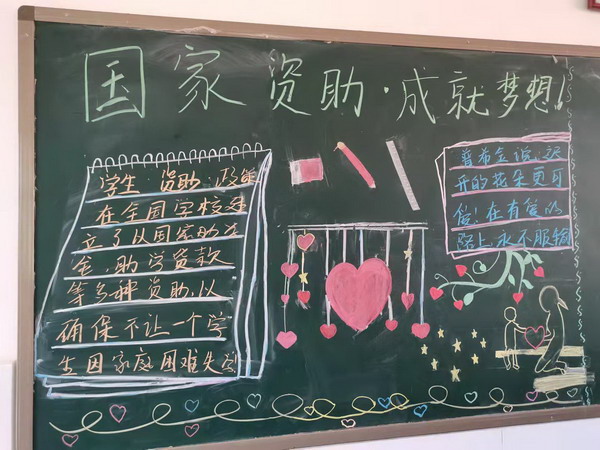 国家资助·成就梦想!
学生资助政策
在全国学校建
立了以国家助学
金,助学贷款
等多种资助,以
确保不让一个学
生因家庭困难失学
普希金说:迟
开的花朵更可
爱!在有爱的
路上永不服输